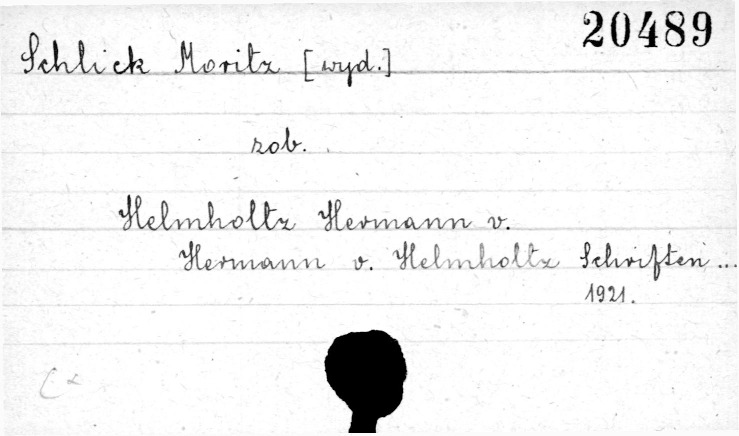 20489
Schlick Moritz [wyd.]
zob.
Helmholtz Hermann v.
Hermann v. Helmholtz Schriften ...
1921.